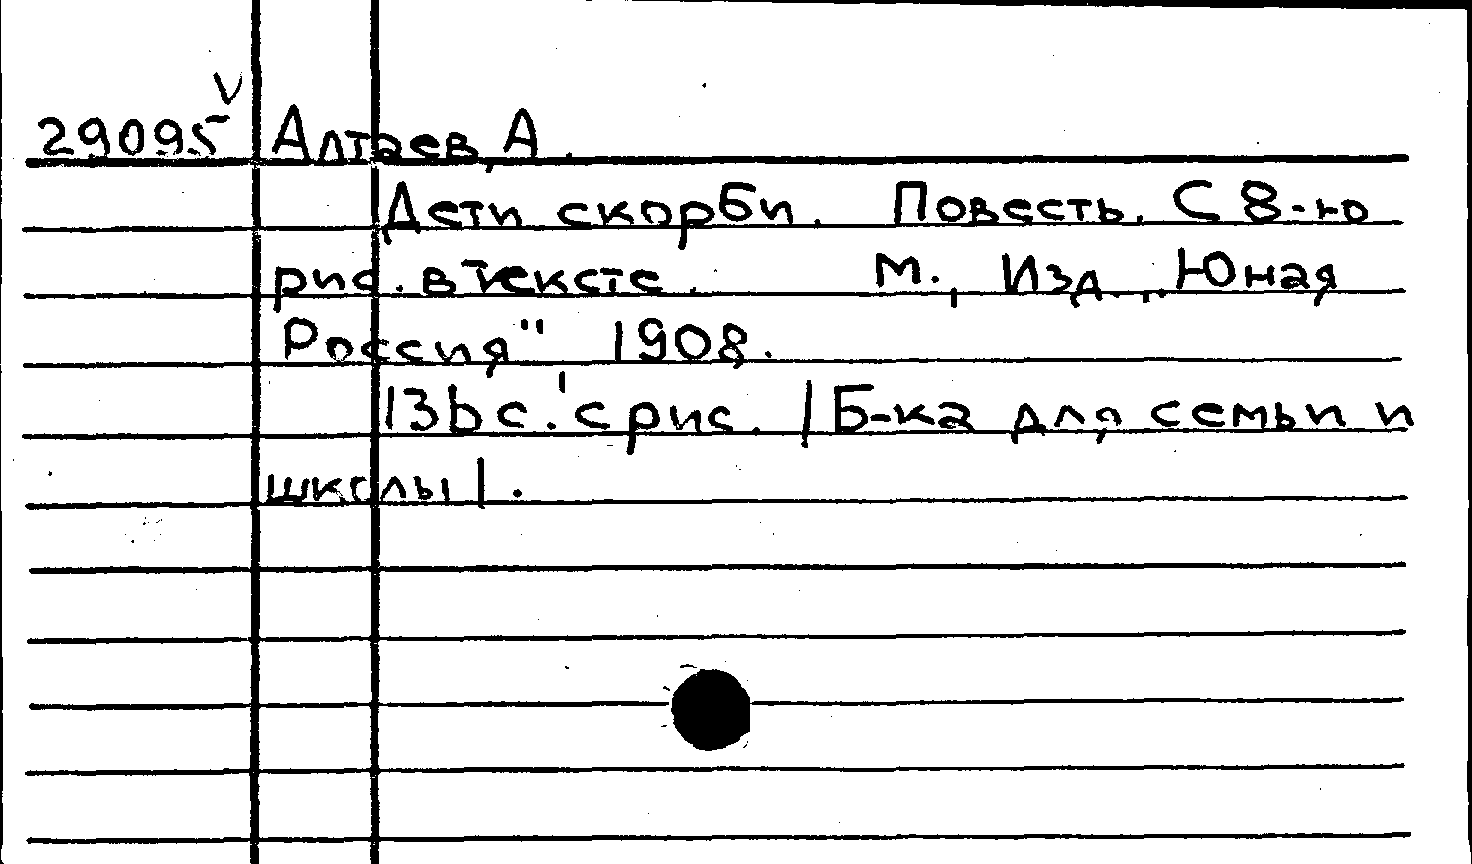 V
29095 Алтаев, А.
Дети скорби. Повесть. С 8-ю
рис. в тексте. М., Изд. „Юная
Россия" 1908.
136 с. с рис. /Б-ка для семьи и
школы/.